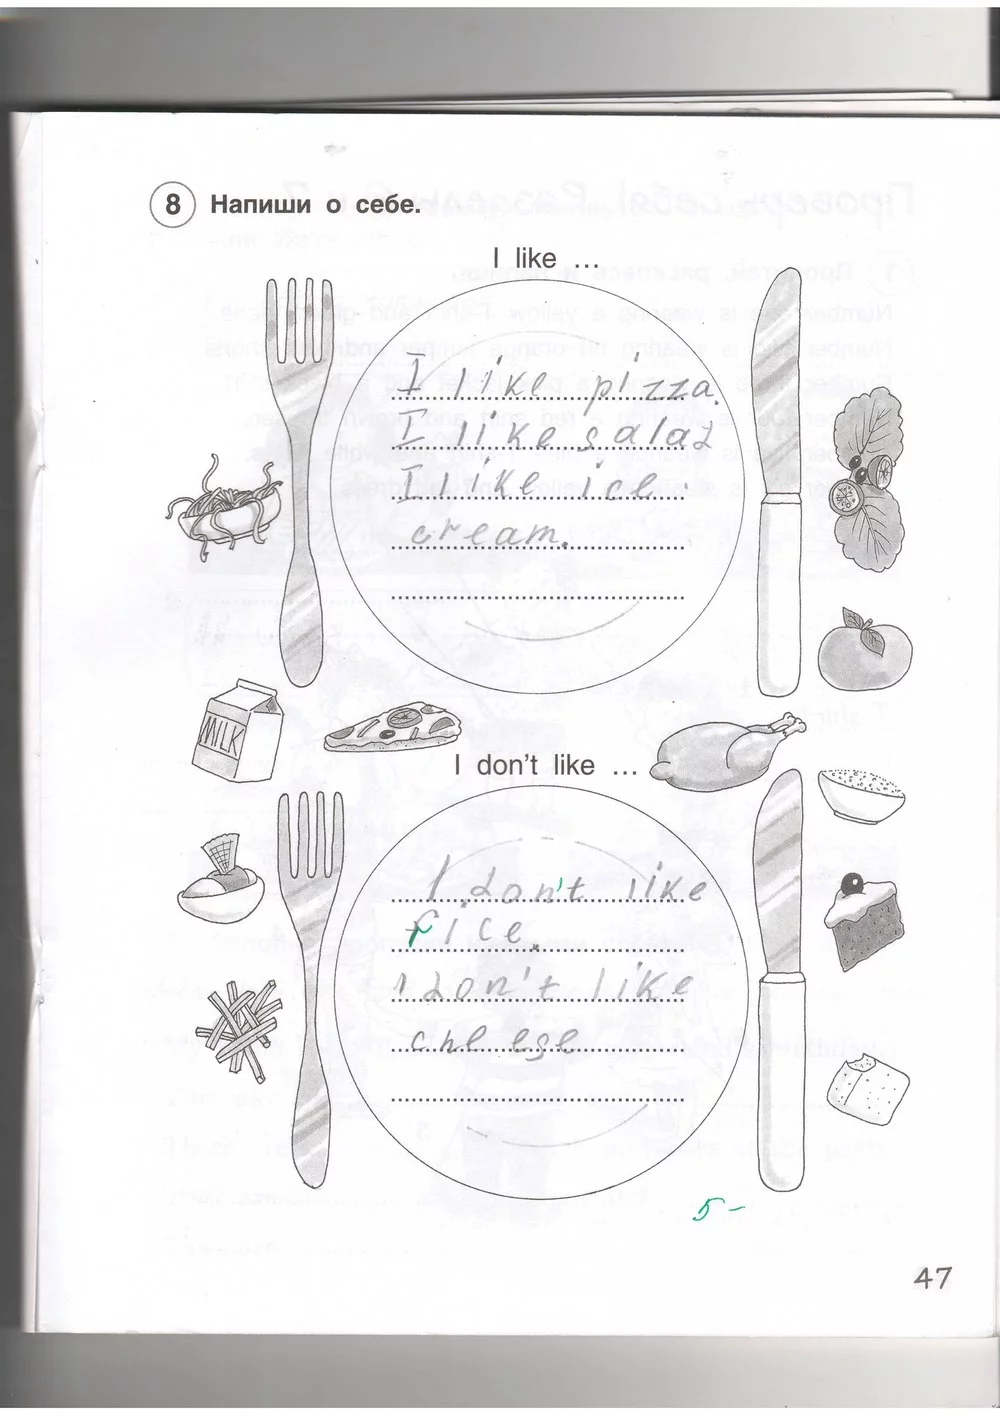 8 Напиши о себе.
I like ...
I like pizza.
I like salad
I like ice
cream.
MILK
I don't like ...
I don't like
rice.
I don't like
cheese
5-
47